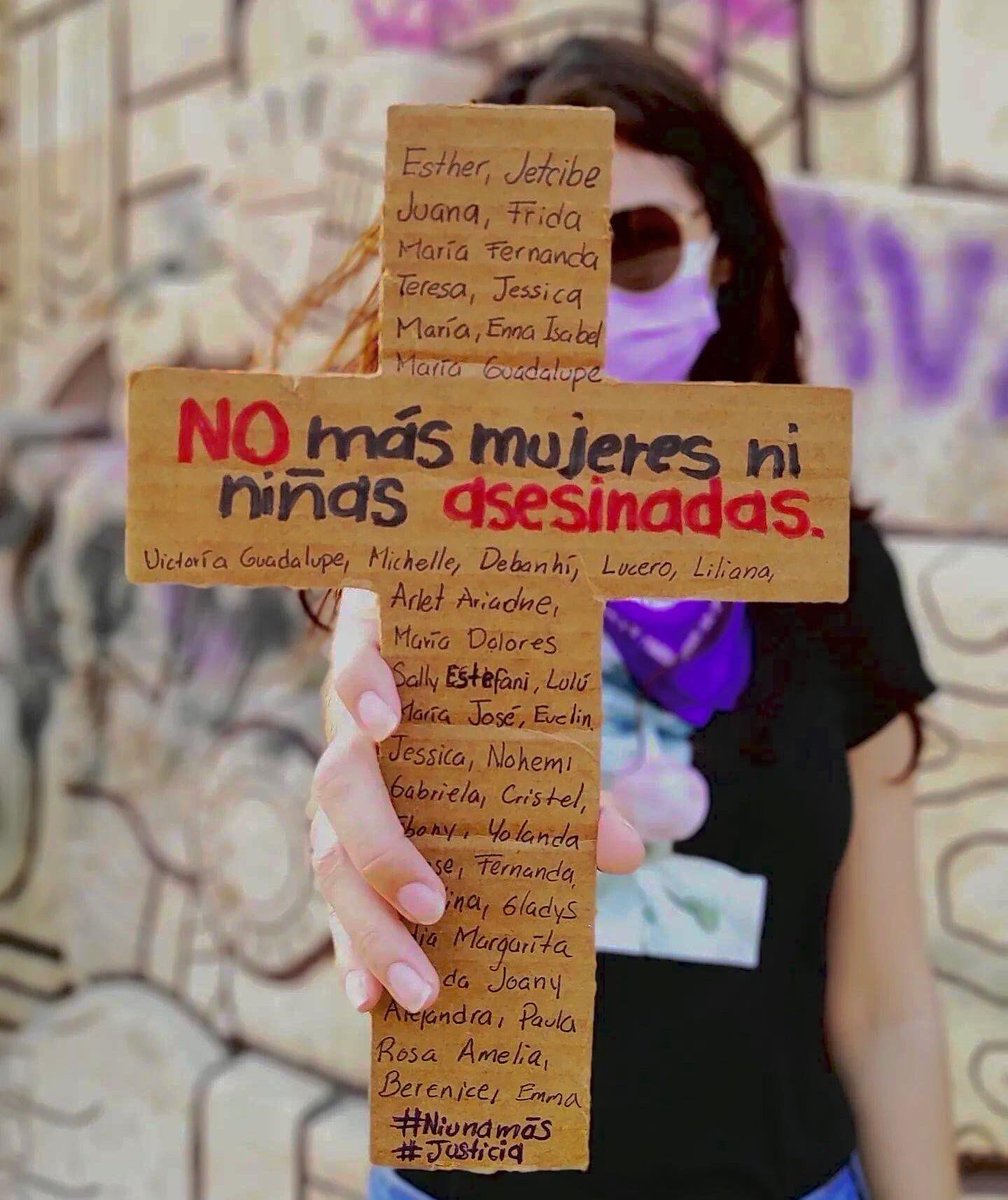 Esther, Jetcibe
Juana, Frida
María Fernanda
Teresa, Jessica
María, Enna Isabel
María Guadalupe
NO más mujeres ni
niñas asesinadas.
Victoría Guadalupe, Michelle, Debanhí, Lucero, Liliana,
Arlet Ariadne,
María Dolores
Sally Estefani, Lulú
María José, Evelin
Jessica, Nohemi
Gabriela, Cristel,
Ebony, Yolanda
Fernanda
Gladys
Margarita
Joany
Alejandra, Paula
Rosa Amelia,
Berenice, Emma
#Niunamás
#Justicia